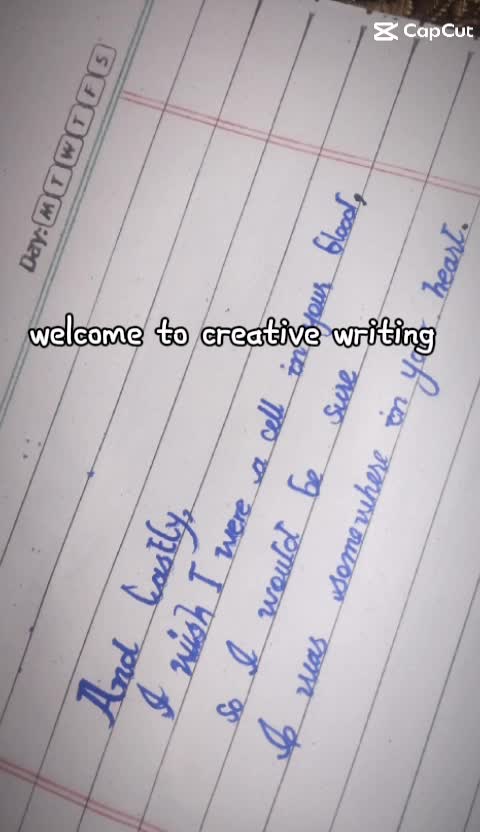 CapCut
Day: M T W T F S
welcome to creative writing
And lastly,
I wish I were a cell in your blood,
So I would be sure
I was somewhere in your heart.